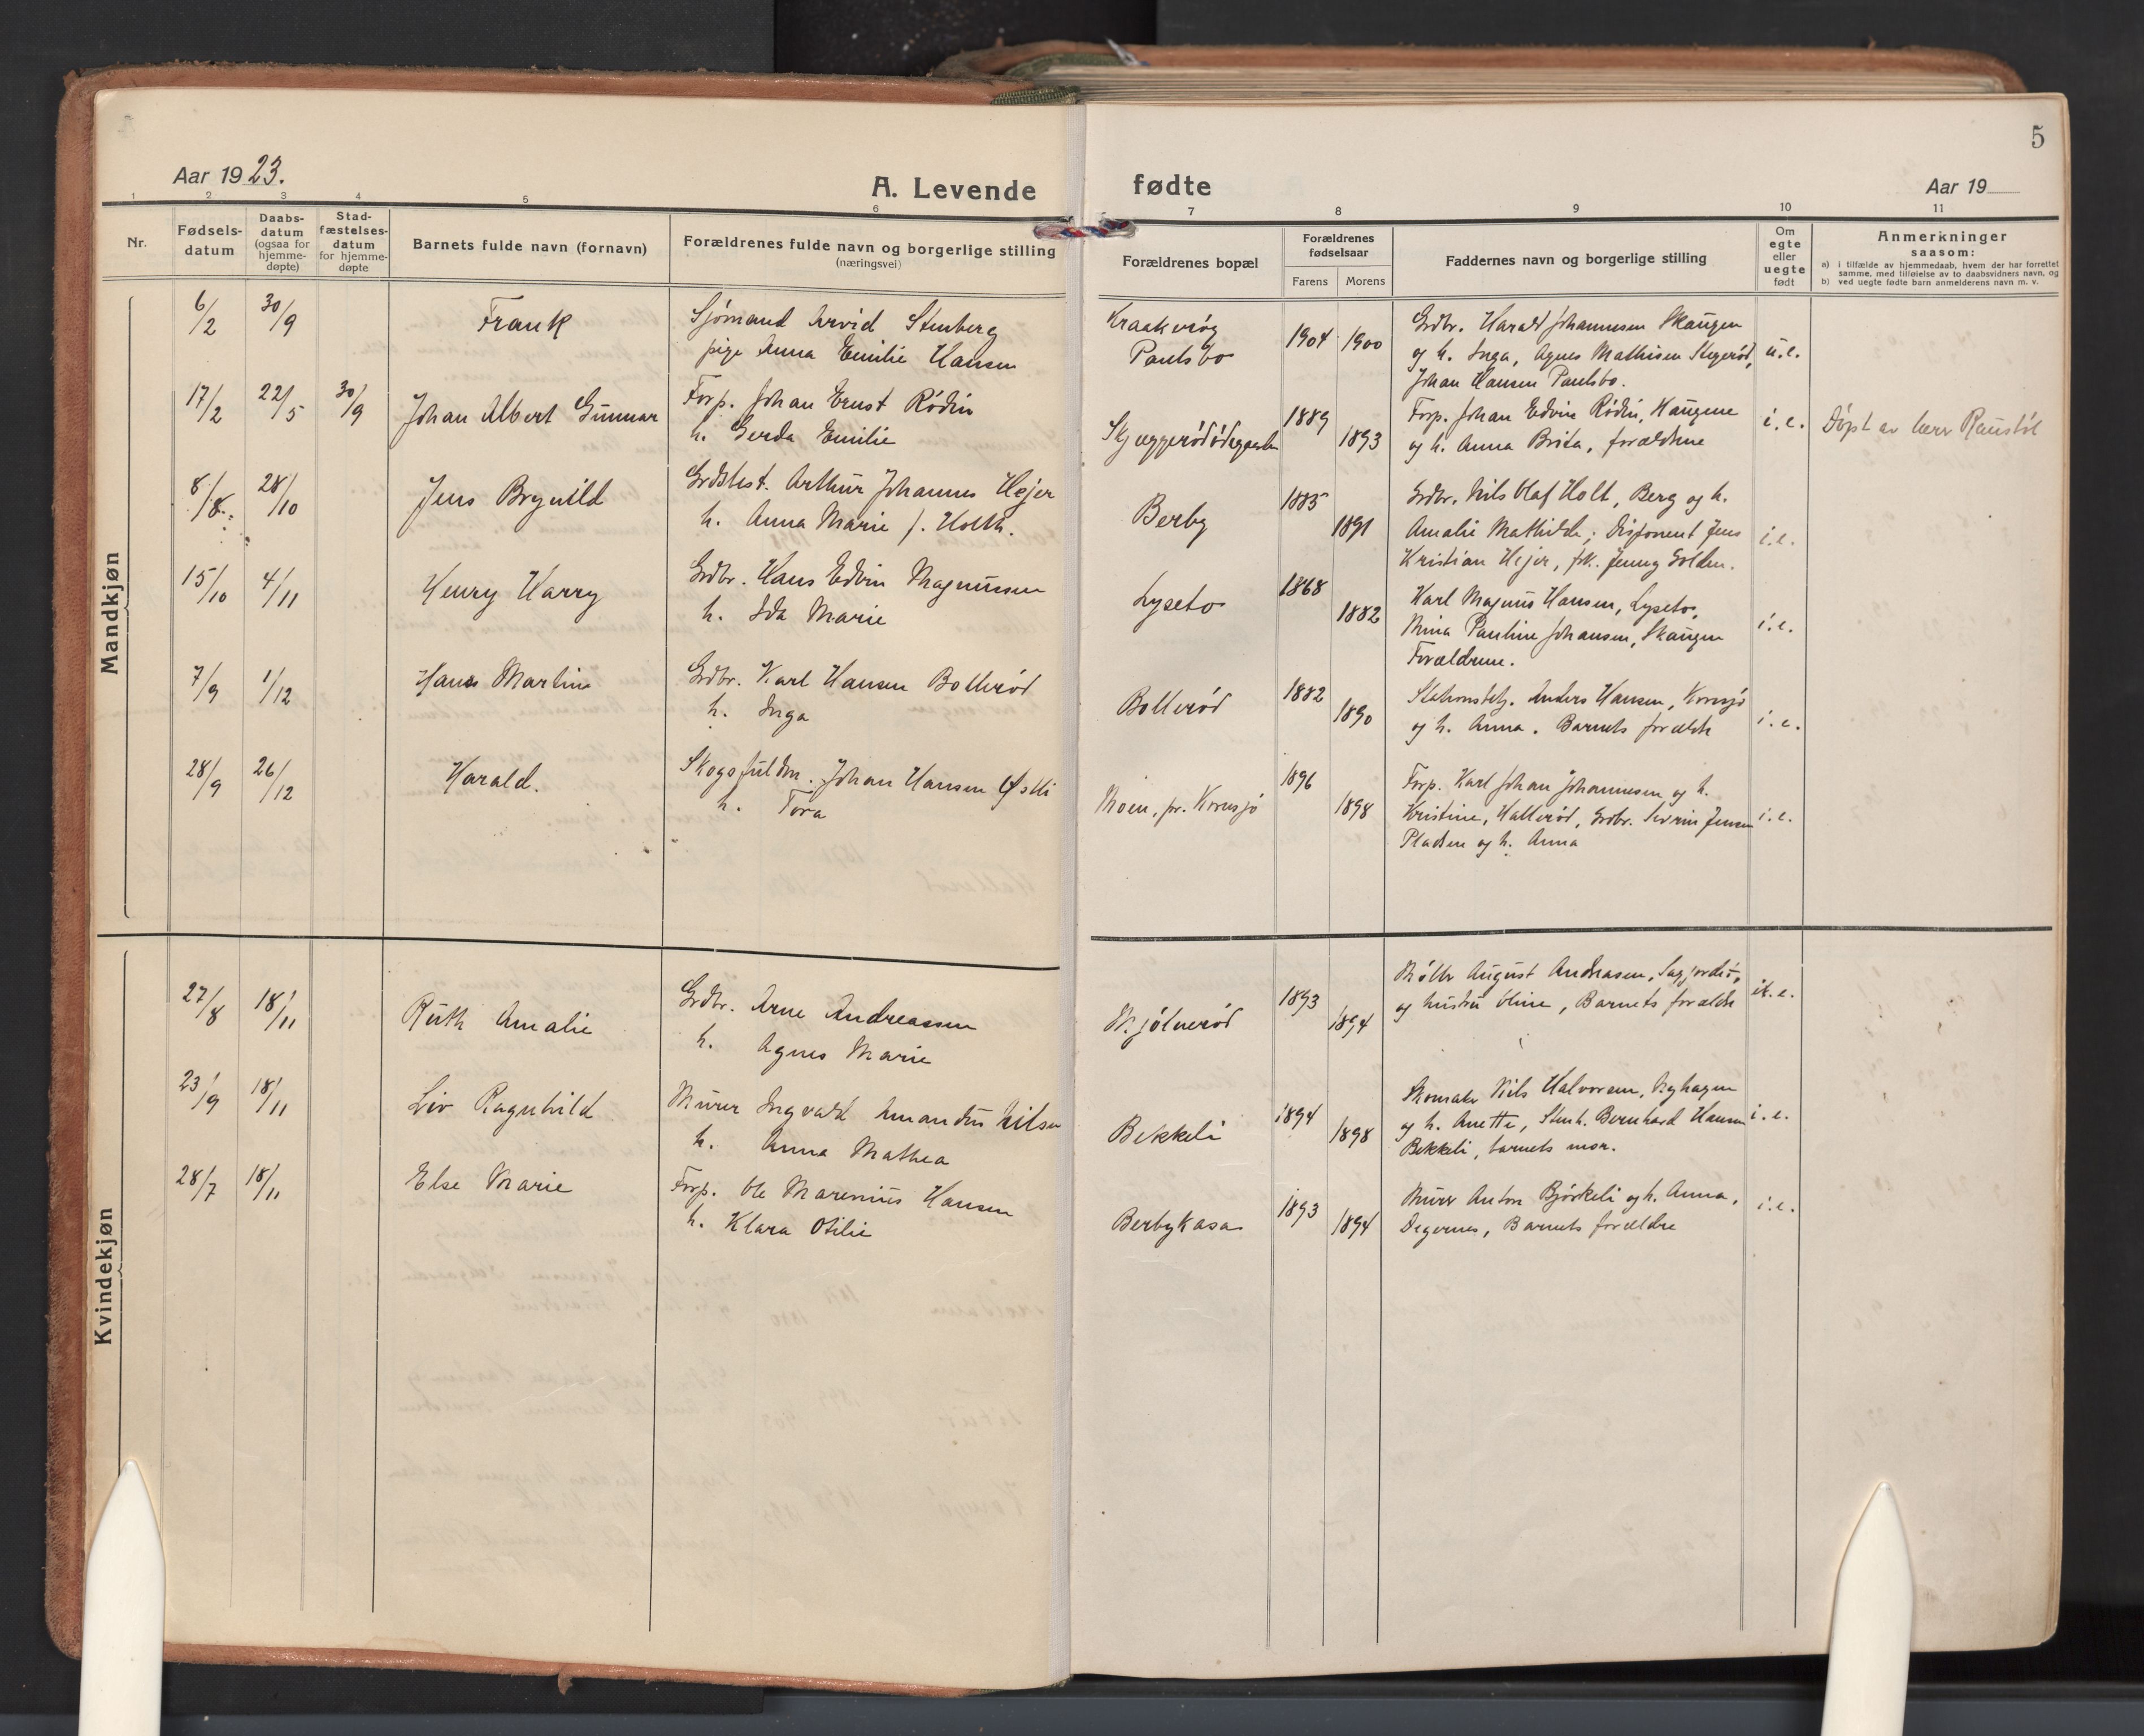 5
Aar 1923.
A. Levende fødte
Aar 19
1 2 3 4 5 6 7 8 9 10 11
Nr.
Fødsels-
datum
Daabs-
datum
(ogsaa for
hjemme-
døpte)
Stad-
fæstelses-
datum
for hjemme-
døpte
Barnets fulde navn (fornavn)
Forældrenes fulde navn og borgerlige stilling
(næringsvei)
Forældrenes bopæl
Forældrenes
fødselsaar
Farens Morens
Faddernes navn og borgerlige stilling
Om
egte
eller
uegte
født
Anmerkninger
saasom:
a) i tilfælde av hjemmedaab, hvem der har forrettet
samme, med tilføielse av to daabsvidners navn, og
b) ved uegte fødte barn anmelderens navn m. v.
Mandkjøn
6/2 30/9 Frank
Sjømand Arvid Stenberg
pige Anna Emilie Hansen
Kraakviög
Paulsbo
1904 1900
Grdbr. Harald Johannesen Skaugen
og h. Inga, Agnes Mathisen Stegerød,
Johan Hansen Paulsbo.
u.e.
17/2 22/5 30/9 Johan Albert Gunnar
Forp. Johan Ernst Rödin
h. Gerda Emilie
Skjæggerødødegaarden
1889 1893
Forp. Johan Edvin Rödin, Haugene
og h. Anna Brita, forældrene
i.e.
Døpt av lærer Raustöl
8/8 28/10 Jens Brynild
Grdbest. Arthur Johannes Hejer
h. Anna Marie f. Holth.
Berby
1885 1891
Grdbr. Nils Olaf Holt, Berg og h.
Amalie Mathilde; Disponent Jens
Kristian Hejer, frk. Jenny Golden.
i.e.
15/10 4/11 Henry Harry
Grdbr. Hans Edvin Magnussen
h. Ida Marie
Lyseto
1868 1882
Karl Magnus Hansen, Lyseto,
Mina Pauline Johansen, Skaugen
Forældrene.
i.e.
7/9 1/12 Hans Martin
Grdbr. Karl Hansen Bollerød
h. Inga
Bollerød
1882 1890
Stationsbetj. Anders Hansen, Kornsjø
og h. Anna. Barnets forældre
i.e.
28/9 26/12 Harald.
Skogsfuldm. Johan Hansen Østli
h. Tora
Moen, pr. Kornsjø
1896 1898
Forp. Karl Johan Johannesen og h.
Kristine, Hallerød, Grdbr. Severin Jensen
Pladsen og h. Anna
i.e.
Kvindekjøn
27/8 18/11 Ruth Amalie
Grdbr. Arne Andreassen
h. Agnes Marie
Mjølnerød
1893 1894
Møller August Andreasen,
og hustru Oline, Barnets forældre
i.e.
23/9 18/11 Liv Ragnhild
Murer Ingvald Amandus Nilsen
h. Anna Mathea
Bekkeli
1894 1898
Skomaker Nils Halvorsen, Nyhagen
og h. Anette, Stenh. Bernhard Hansen
Bekkeli, barnets mor.
i.e.
28/7 18/11 Else Marie
Forp. Ole Marenius Hansen
h. Klara Otilie
Berbykasa
1893 1894
Murer Anton Bjørkeli og h. Anna,
Degernes, Barnets forældre
i.e.